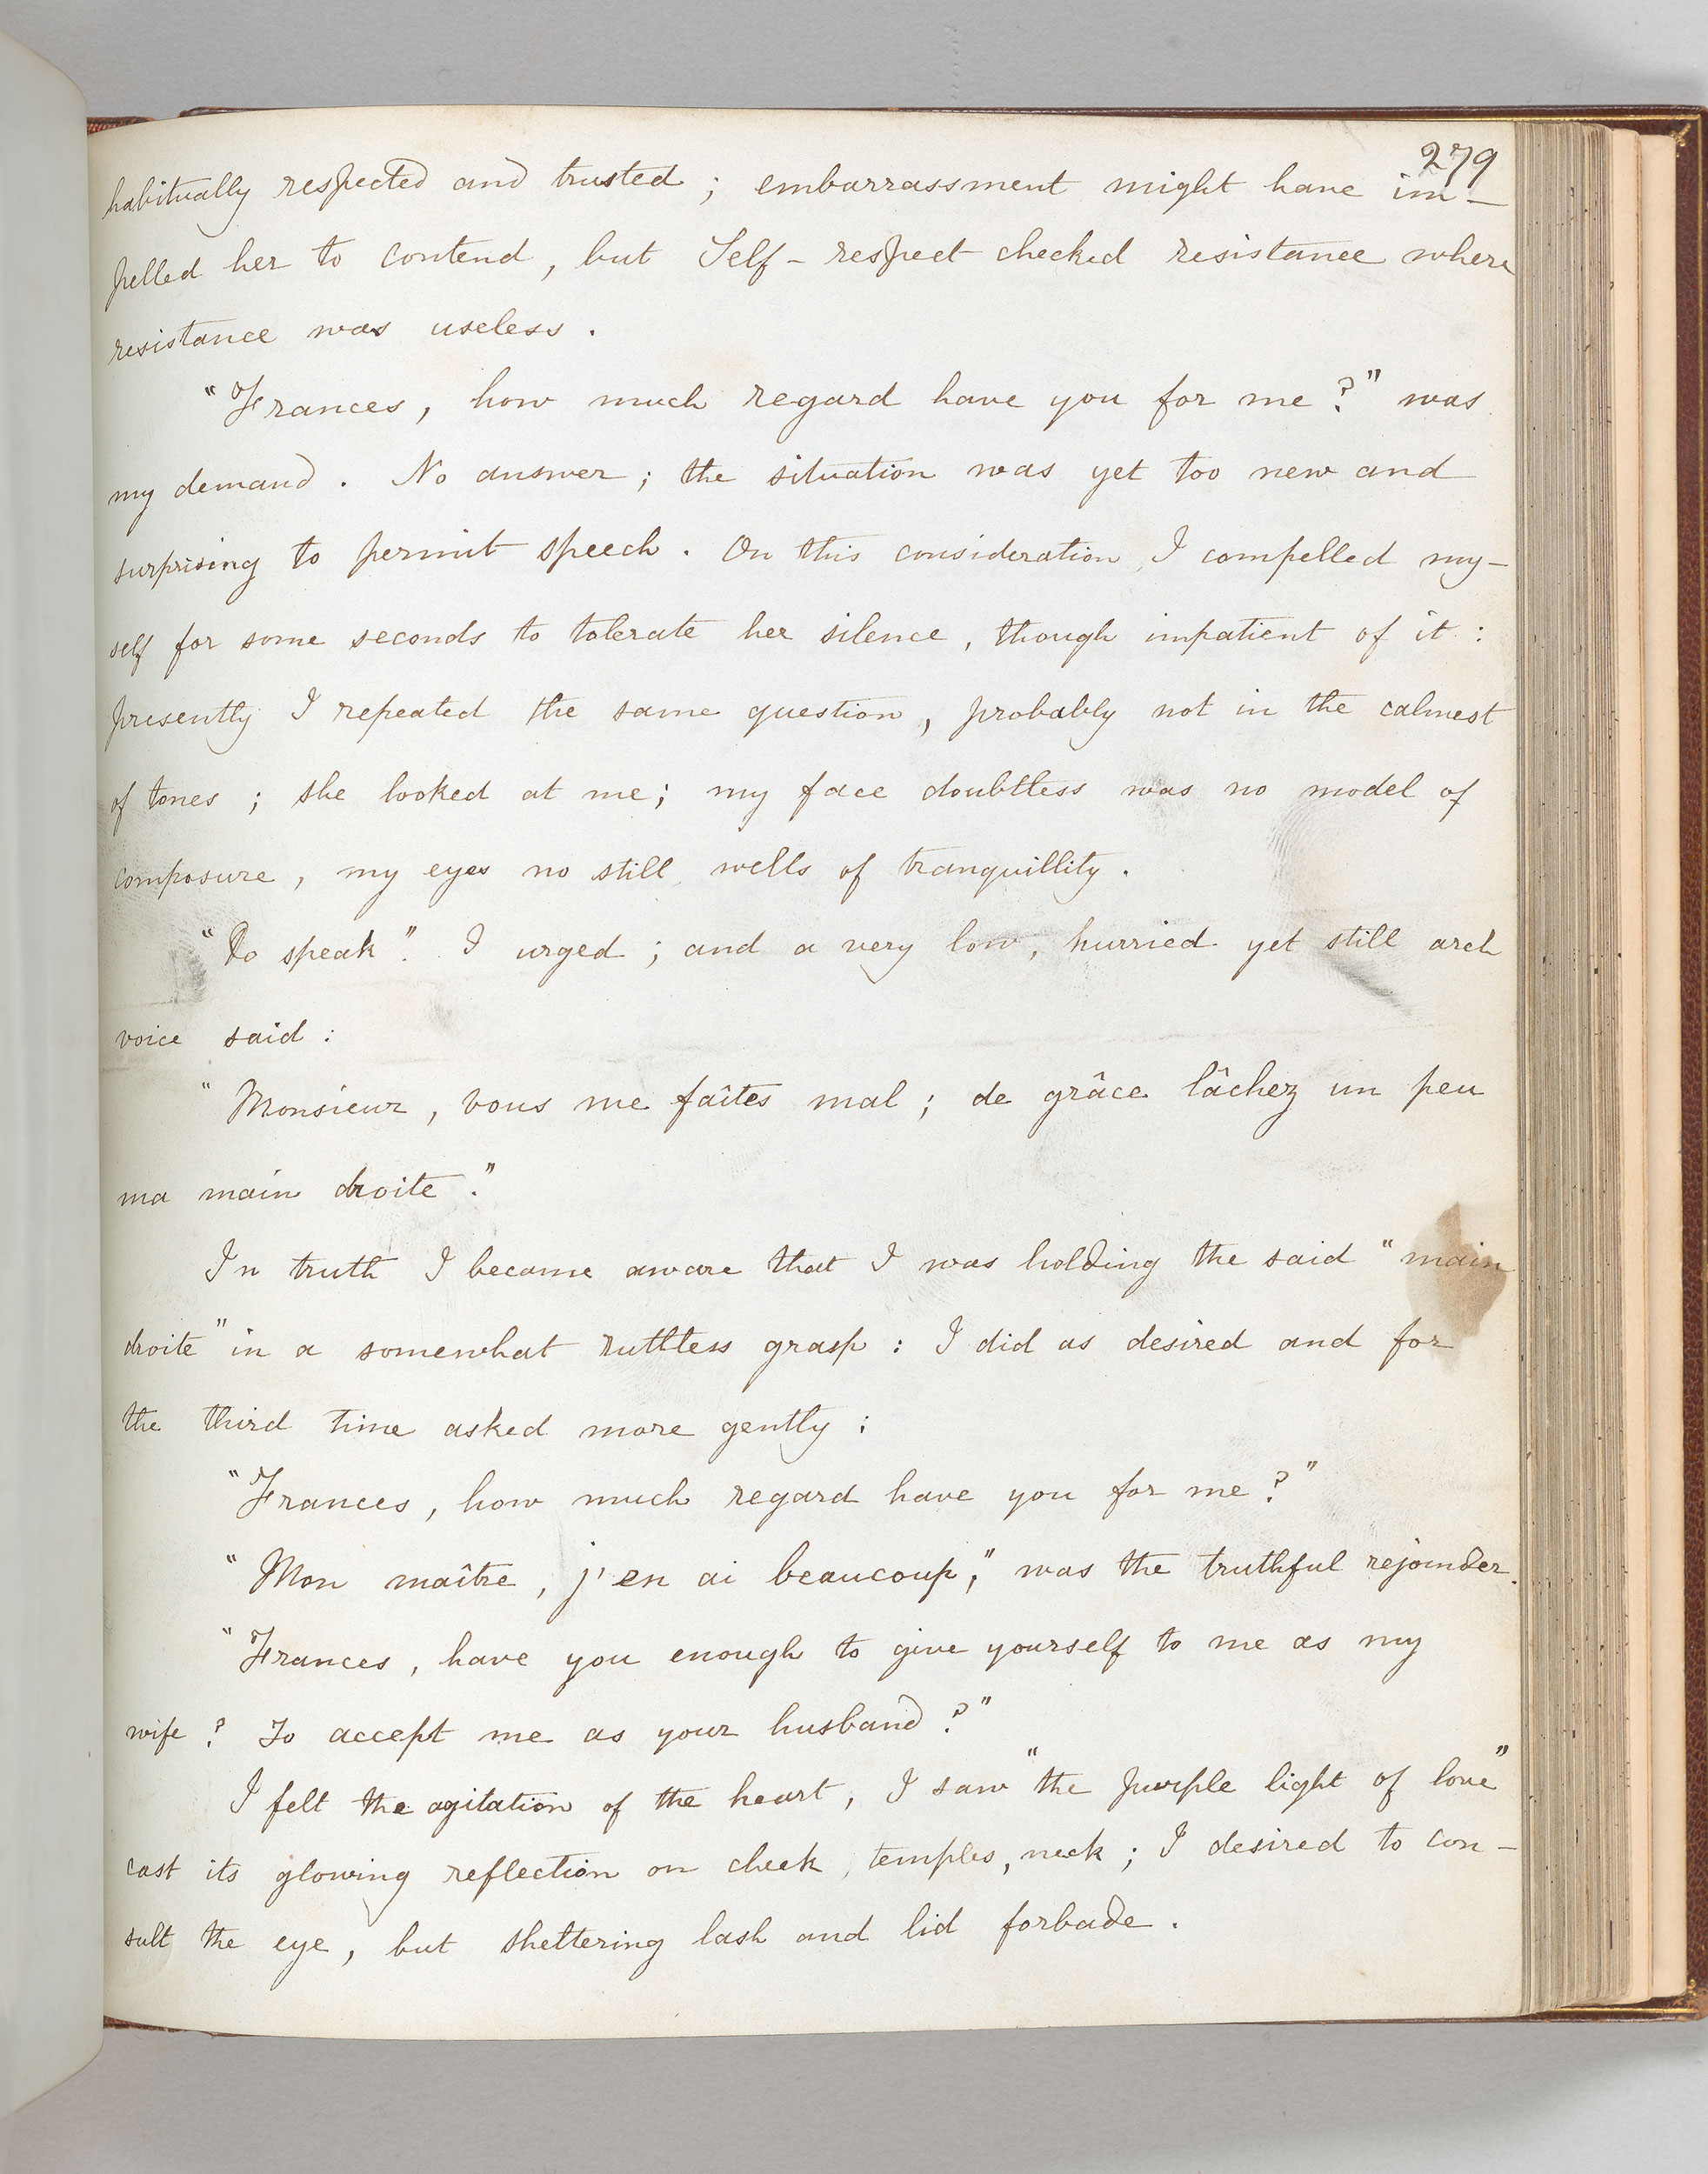 279
habitually respected and trusted ; embarrassment might have im-
pelled her to contend , but Self-respect checked resistance where
resistance was useless .
"Frances, how much regard have you for me ?" was
my demand . No answer ; the situation was yet too new and
surprising to permit speech . On this consideration, I compelled my-
self for some seconds to tolerate her silence , though impatient of it :
presently I repeated the same question , probably not in the calmest
of tones ; she looked at me ; my face doubtless was no model of
composure , my eyes no still wells of tranquillity .
"Do speak". I urged ; and a very low, hurried yet still arch
voice said :
"Monsieur, vous me faîtes mal ; de grâce lâchez un peu
ma main droite ."
In truth I became aware that I was holding the said "main
droite" in a somewhat ruthless grasp : I did as desired and for
the third time asked more gently :
"Frances, how much regard have you for me ?"
"Mon maître, j'en ai beaucoup," was the truthful rejoinder.
"Frances, have you enough to give yourself to me as my
wife ? To accept me as your husband ?"
I felt the agitation of the heart, I saw "the purple light of love"
cast its glowing reflection on cheek, temples, neck ; I desired to con-
sult the eye, but sheltering lash and lid forbade .